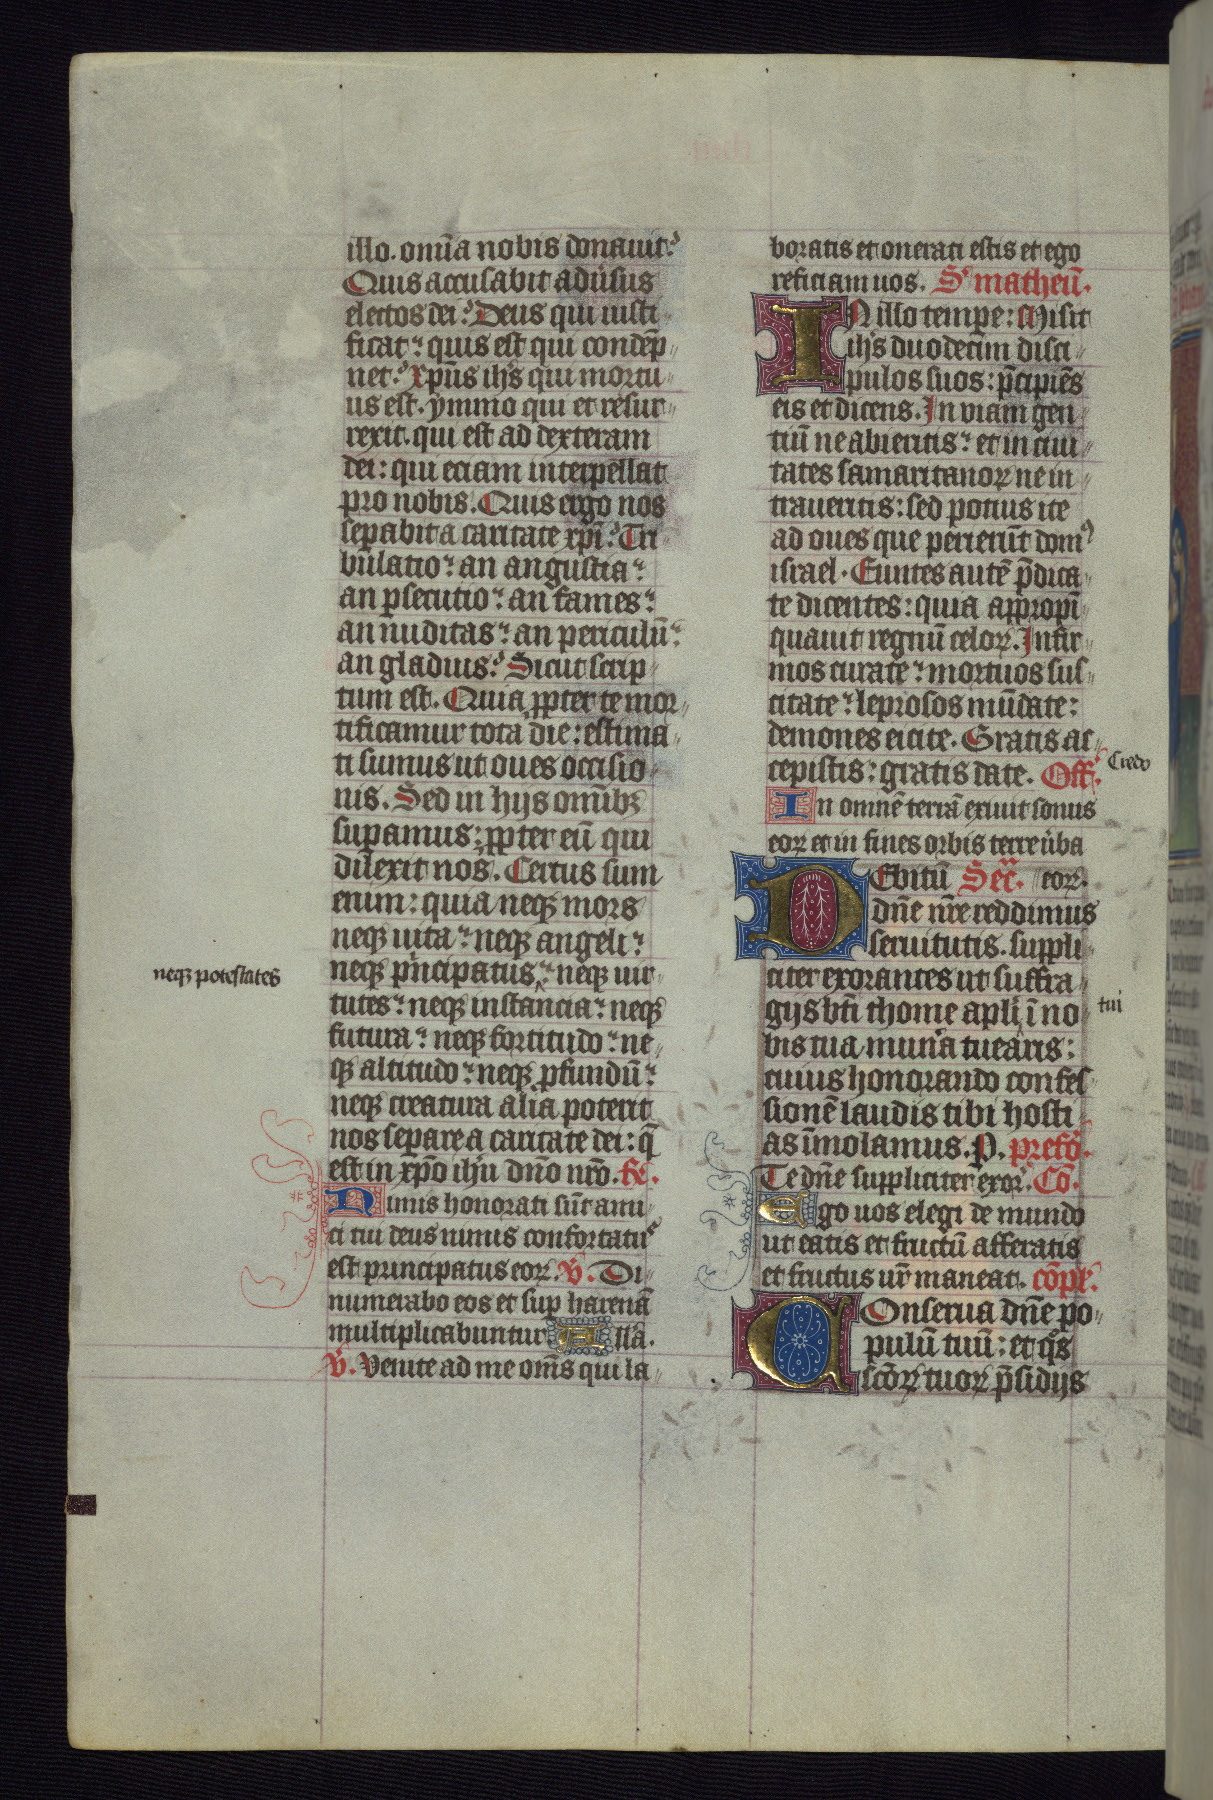 illo. om̄ia nobis donauit?
Quis accusabit adu̾sus
electos dei? Deus qui iusti
ficat: quis est qui condēp
net? xp̄us ih̄s qui mortu
us est. ymmo qui et resur
rexit. qui est ad dexteram
dei: qui eciam interpellat
pro nobis. Quis ergo nos
sepabit a caritate xp̄i? Tri
bulatio: an angustia:
an ꝑsecutio: an fames:
an nuditas: an periculū:
an gladius? Sicut scrip
tum est. Quia ꝓpter te mor
tificamur tota die: estima
ti sumus ut oues occisio
nis. Sed in hijs omībꝫ
supamus: ꝓpter eū qui
dilexit nos. Certus sum
enim: quia neqꝫ mors
neqꝫ uita: neqꝫ angeli:
neqꝫ potestates
neqꝫ pͥncipatus: neqꝫ uir
tutes: neqꝫ instancia: neqꝫ
futura: neqꝫ fortitudo: ne
qꝫ altitudo: neqꝫ ꝓfundū:
neqꝫ creatura alia poterit
nos separe a caritate dei: q̄
est in xp̄o ih̄u dn̄o nr̄o. Gͤ.
Nimis honorati sūt ami
ci tui deus nimis confortatuˢ
est principatus eoꝝ. ℣. Di
numerabo eos et sup harenā
multiplicabuntur Alla.
℣. Venite ad me om̄s qui la
boratis et onerati estis et ego
reficiam uos. S' matheū.
IN illo temp̄e: Misit
ih̄s duodecim disci
pulos suos: p̄cipiēs
eis et dicens. In viam gen
tiū ne abieritis: et in ciui
tates samaritanoꝝ ne in
traueritis: sed potius ite
ad oues que perierūt domꝰ
israel. Euntes autē p̄dica
te dicentes: quia appropī
quauit regnū celoꝝ. Infir
mos curate: mortuos sus
citate: leprosos mūdate:
demones eicite. Gratis ac
cepistis: gratis date. Off̄. Credo
In omnē terrā exiuit sonus
eoꝝ et in fines orbis terre u̾ba
DEbitū Sec̄. eoꝝ.
dn̄e nr̄e reddimus
seruitutis. suppli
citer exorantes ut suffra
gijs bt̄i thome apli ī no tui
bis tua mun̾a tuearis:
cuius honorando confes
sionē laudis tibi hosti
as īmolamus. P. prefō.
Te dn̄e suppliciter exoꝝ. Cō.
Ego uos elegi de mundo
ut eatis et fructū afferatis
et fructus ur̄ maneat. cōple.
COnserua dn̄e po
pulū tuū: et qͦs
sc̄oꝝ tuoꝝ p̄sidijs